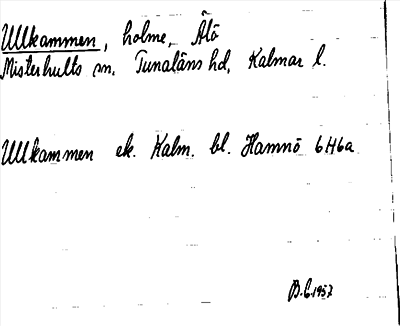 Ullkammen, holme, Älö
Misterhults sn. Tunaläns hd, Kalmar l.
Ullkammen ek. Kalm. bl. Hamnö 6H6a
B.E. 1957